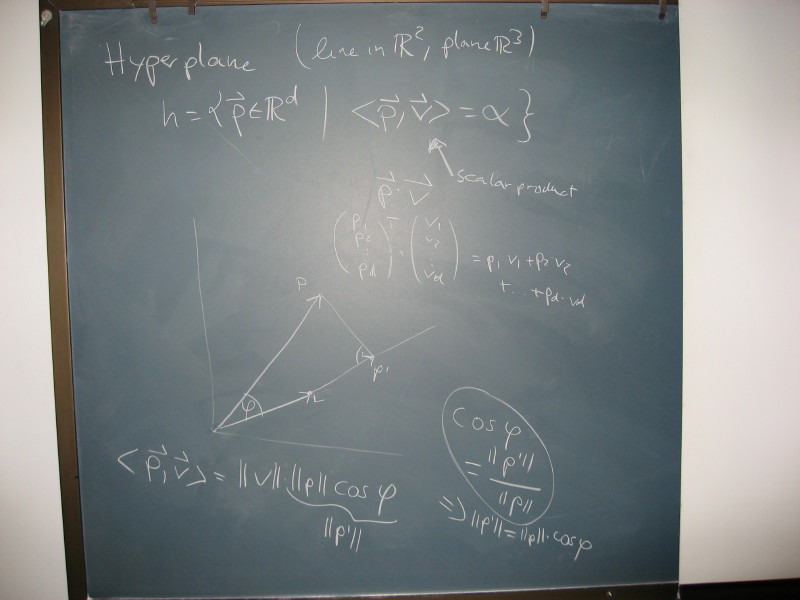 Hyperplane (line in ℝ², plane ℝ³)
h = { p⃗ ∈ ℝᵈ | <p⃗, v⃗> = α }
scalar product
p⃗ · v⃗
(p₁ p₂ ⋮ pd)ᵀ · (v₁ v₂ ⋮ vd) = p₁ v₁ + p₂ v₂
+ ... + pd · vd
p
p'
φ
v
<p⃗, v⃗> = ||v|| · ||p|| cos φ
||p'||
cos φ
= ||p'|| / ||p||
⇒ ||p'|| = ||p|| · cos φ